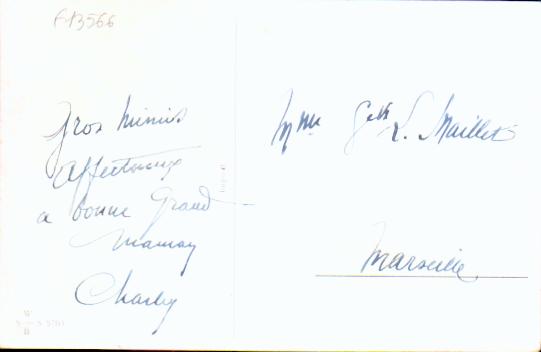 613566
Gros mimis
affectueux
a bonne Grand
maman
Charley
Mme L. Maillet
Marseille